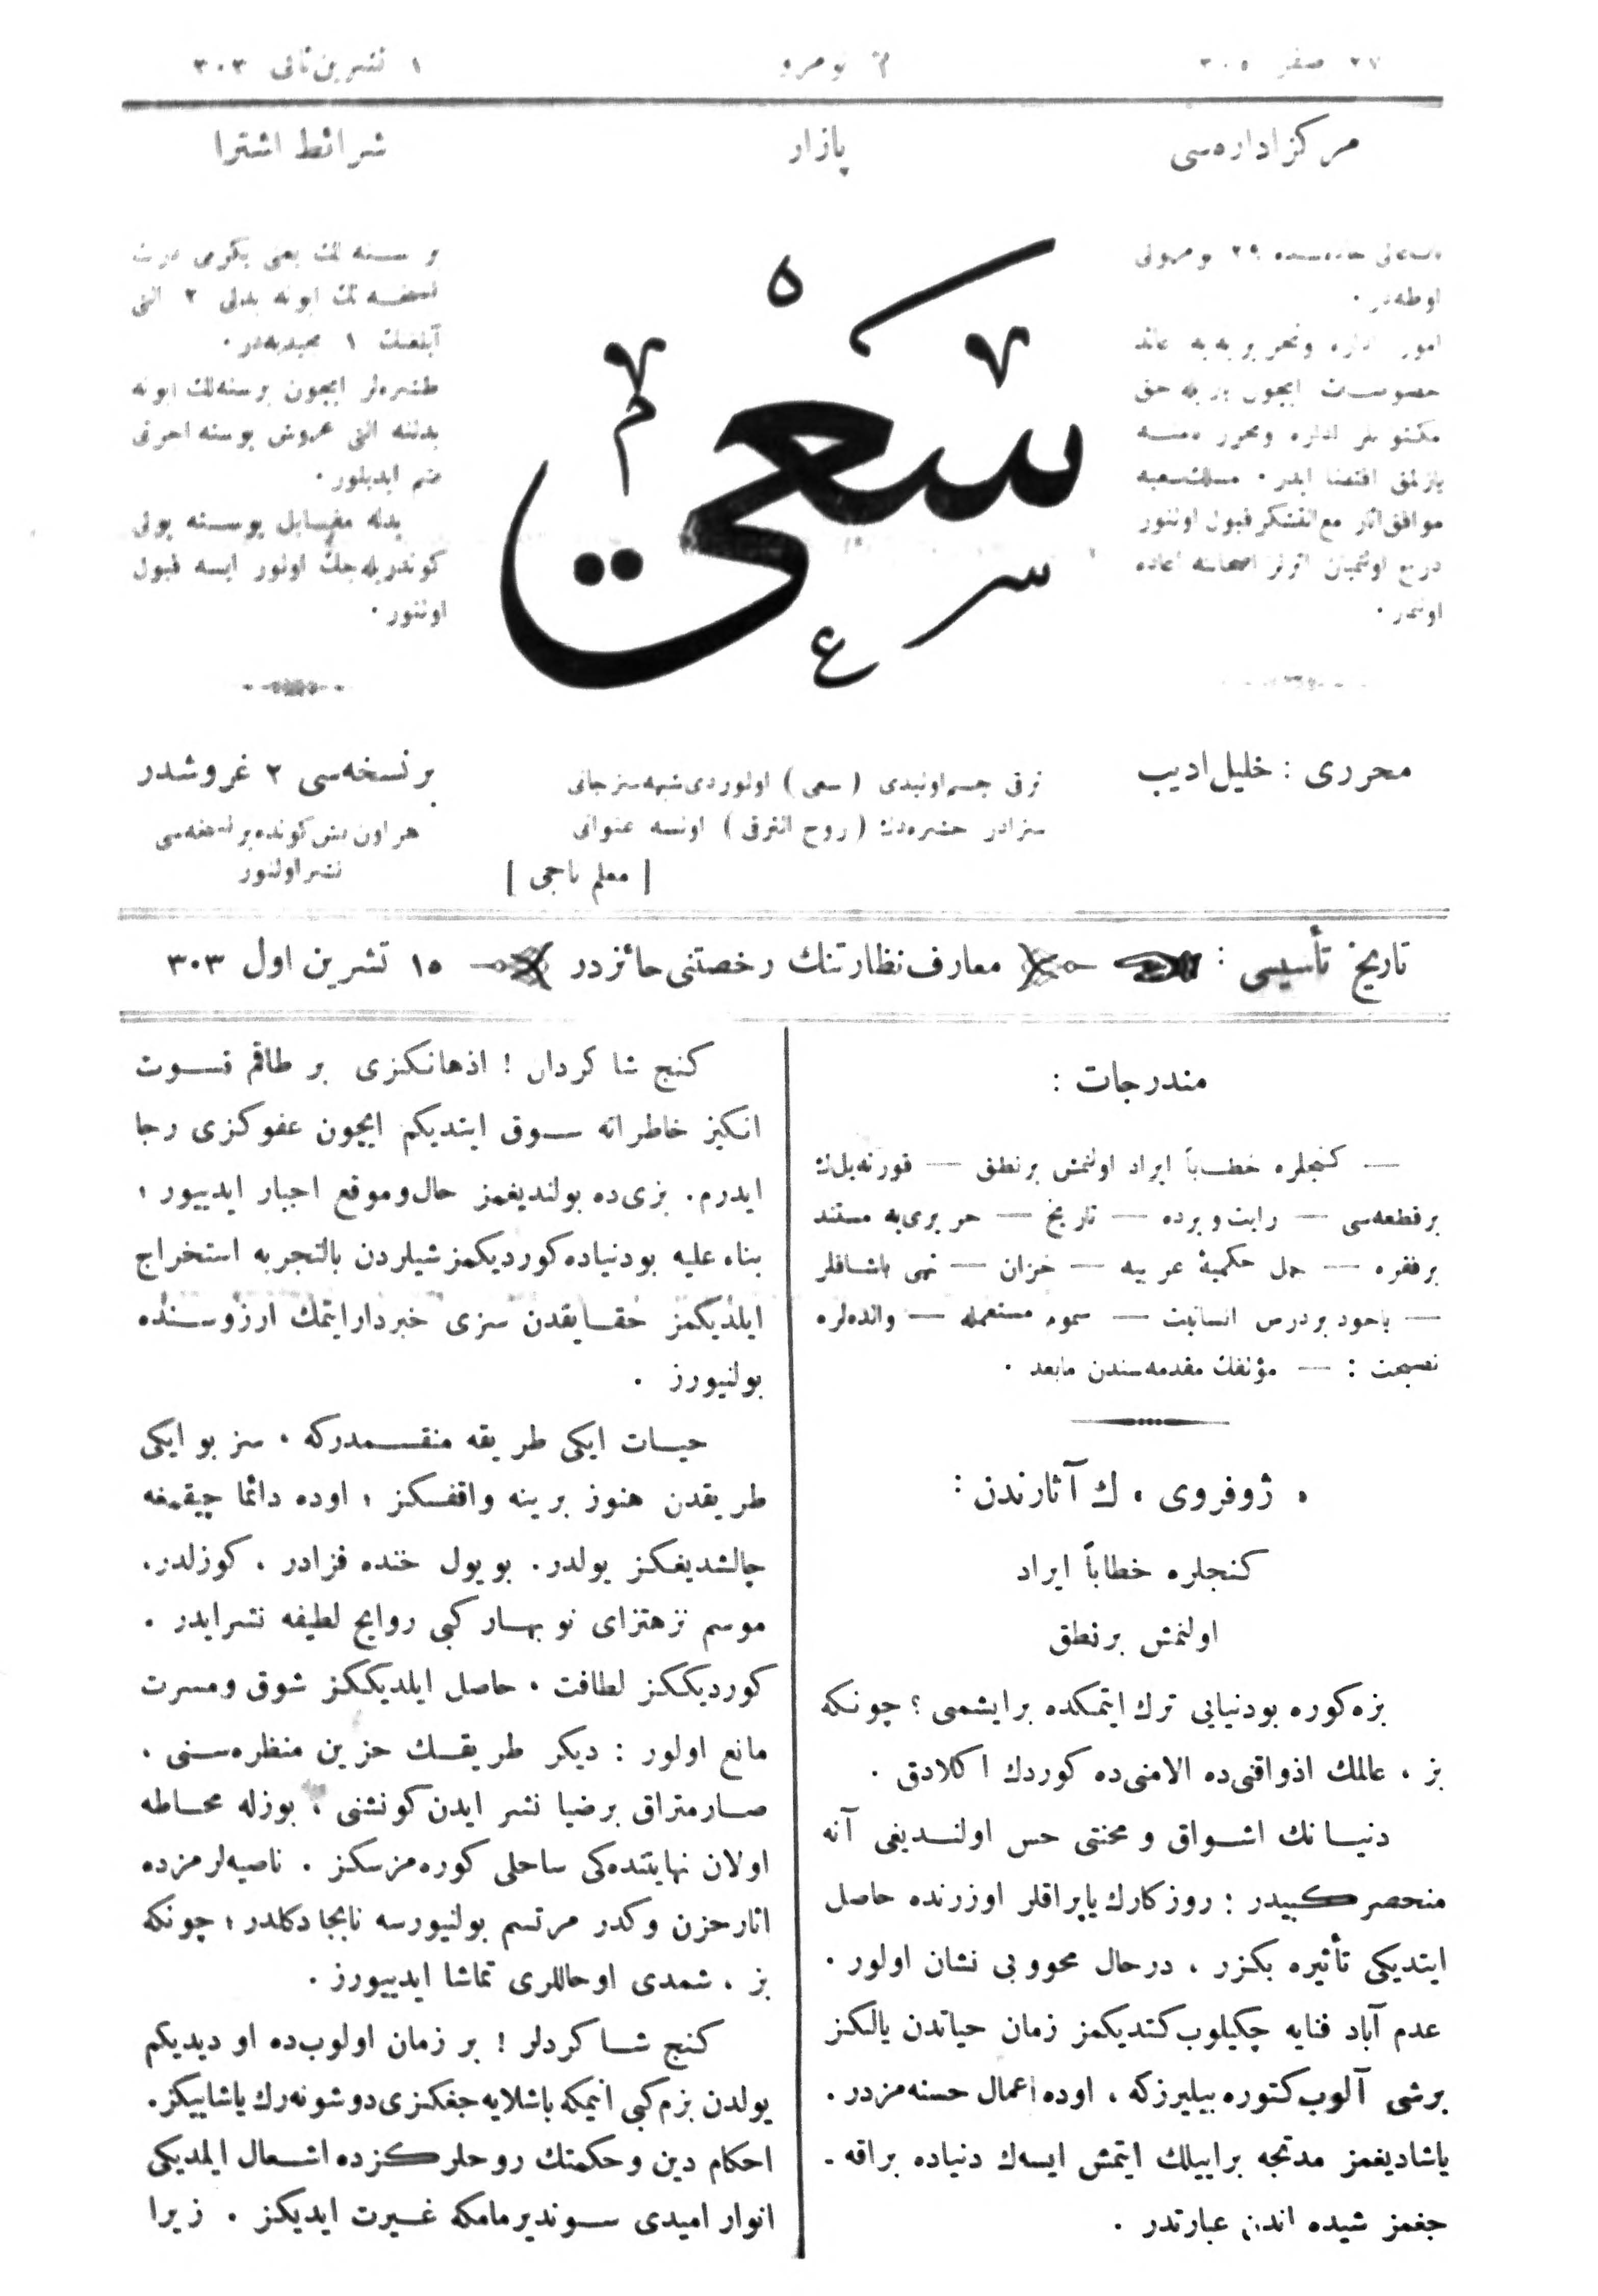 ٢٧ صفر ٣٠٥
نومرو
١ تشرین‌ثانی ٣٠٣
مركز اداره‌سی
پازار
شرائط اشترا
اوطه‌در.
امور اداره و تحریریه‌یه عائد
خصوصات ایچون
مكتوبلر اداره و محرر نامنه
یازلمق اقتضا ایدر. مسلك سعیه
موافق آثار مع‌التشكر قبول اولنور
درج اولنمیان اثرلر اصحابنه اعاده
اولنماز.
سعی
بر سنه‌لك یعنی یكرمی درت
نسخه‌لك ابونه بدلی ٢ التی
آیلغك ١ مجیدیه‌در.
طشره‌لر ایچون بر سنه‌لك ابونه
بدلنه التی غروش پوسته اجرتی
ضم ایدیلور.
بدله مقابل پوسته پولی
كوندریله‌جك اولور ایسه قبول
اولنور.
محرری : خلیل ادیب
ترقی جسم اولیدی (سعی) اولوردی شبهه‌سز جانی
سزادر حشره‌دك (روح الترقی) اولسه عنوانی
[ معلم ناجی ]
بر نسخه‌سی ٢ غروشدر
هر اون بش كونده بر نسخه‌سی
نشر اولنور
تاریخ تأسیسی : معارف نظارتنك رخصتنی حائزدر ١٥ تشرین اول ٣٠٣
مندرجات :
— كنجلره خطاباً ایراد اولنمش بر نطق — قورنه‌یل‌ك
بر قطعه‌سی — رایت و پرده — تاریخ — حریری‌یه مستند
بر فقره — جمل حكمیهٔ عربیه — خزان —
— یاخود بر درس انسانیت — سموم مستعمله — والده‌لره
نصیحت : — مؤلفك مقدمه‌سندن مابعد .
« ژوفروی » ك آثارندن :
كنجلره خطاباً ایراد
اولنمش بر نطق
بزه كوره بو دنیایی ترك ایتمكده بر ایشمی ؟ چونكه
بز ، عالمك اذواقنی‌ده الامنی‌ده كوردك اكلادق .
دنیانك اشواق و محنتی حس اولندیغی آنه
منحصر كبیدر : روزكارك یاپراقلر اوزرنده حاصل
ایتدیكی تأثیره بكزر ، درحال محو و بی نشان اولور .
عدم آباد فنایه چكیلوب كتدیكمز زمان حیاتدن یالكز
برشی آلوب كتوره بیلیرزكه ، اوده اعمال حسنه‌مزدر .
یاشادیغمز مدتجه بر اییلك ایتمش ایسه‌ك دنیاده براقه‌ -
جغمز شیده اندن عبارتدر .
كنج شاكردان ! اذهانكزی بر طاقم قسوت
انكیز خاطراته سوق ایتدیكم ایچون عفوكزی رجا
ایدرم. بزی‌ده بولندیغمز حال و موقع اجبار ایدییور ؛
بناء علیه بو دنیاده كوردیكمز شیلردن بالتجربه استخراج
ایلدیكمز حقایقدن سزی خبردار ایتمك ارزوسنده
بولنیورز .
حیات ایكی طریقه منقسمدركه ، سز بو ایكی
طریقدن هنوز برینه واقفسكز ؛ اوده دائما چیقمغه
چالشدیغكز یولدر. بو یول خنده فزادر ، كوزلدر،
موسم نزهتزای نوبهار كبی روایح لطیفه نشر ایدر .
كوردیككز لطافت ، حاصل ایلدیككز شوق و مسرت
مانع اولور : دیكر طریقك حزین منظره‌سنی ،
صارمتراق بر ضیا نشر ایدن كونشنی ، بوزله محاطه
اولان نهایتنده‌كی ساحلی كوره‌مزسكز . ناصیه‌لرمزده
اثار حزن و كدر مرتسم بولنیورسه نابجا دكلدر ؛ چونكه
بز ، شمدی او حاللری تماشا ایدییورز .
كنج شاكردلر ! بر زمان اولوب‌ده او دیدیكم
یولدن بزم كبی اینمكه باشلایه‌جغكزی دوشونه‌رك یاشاییكز.
احكام دین و حكمتك روحلركزده اشعال ایلدیكی
انوار امیدی سوندیرمامكه غیرت ایدیكز . زیرا